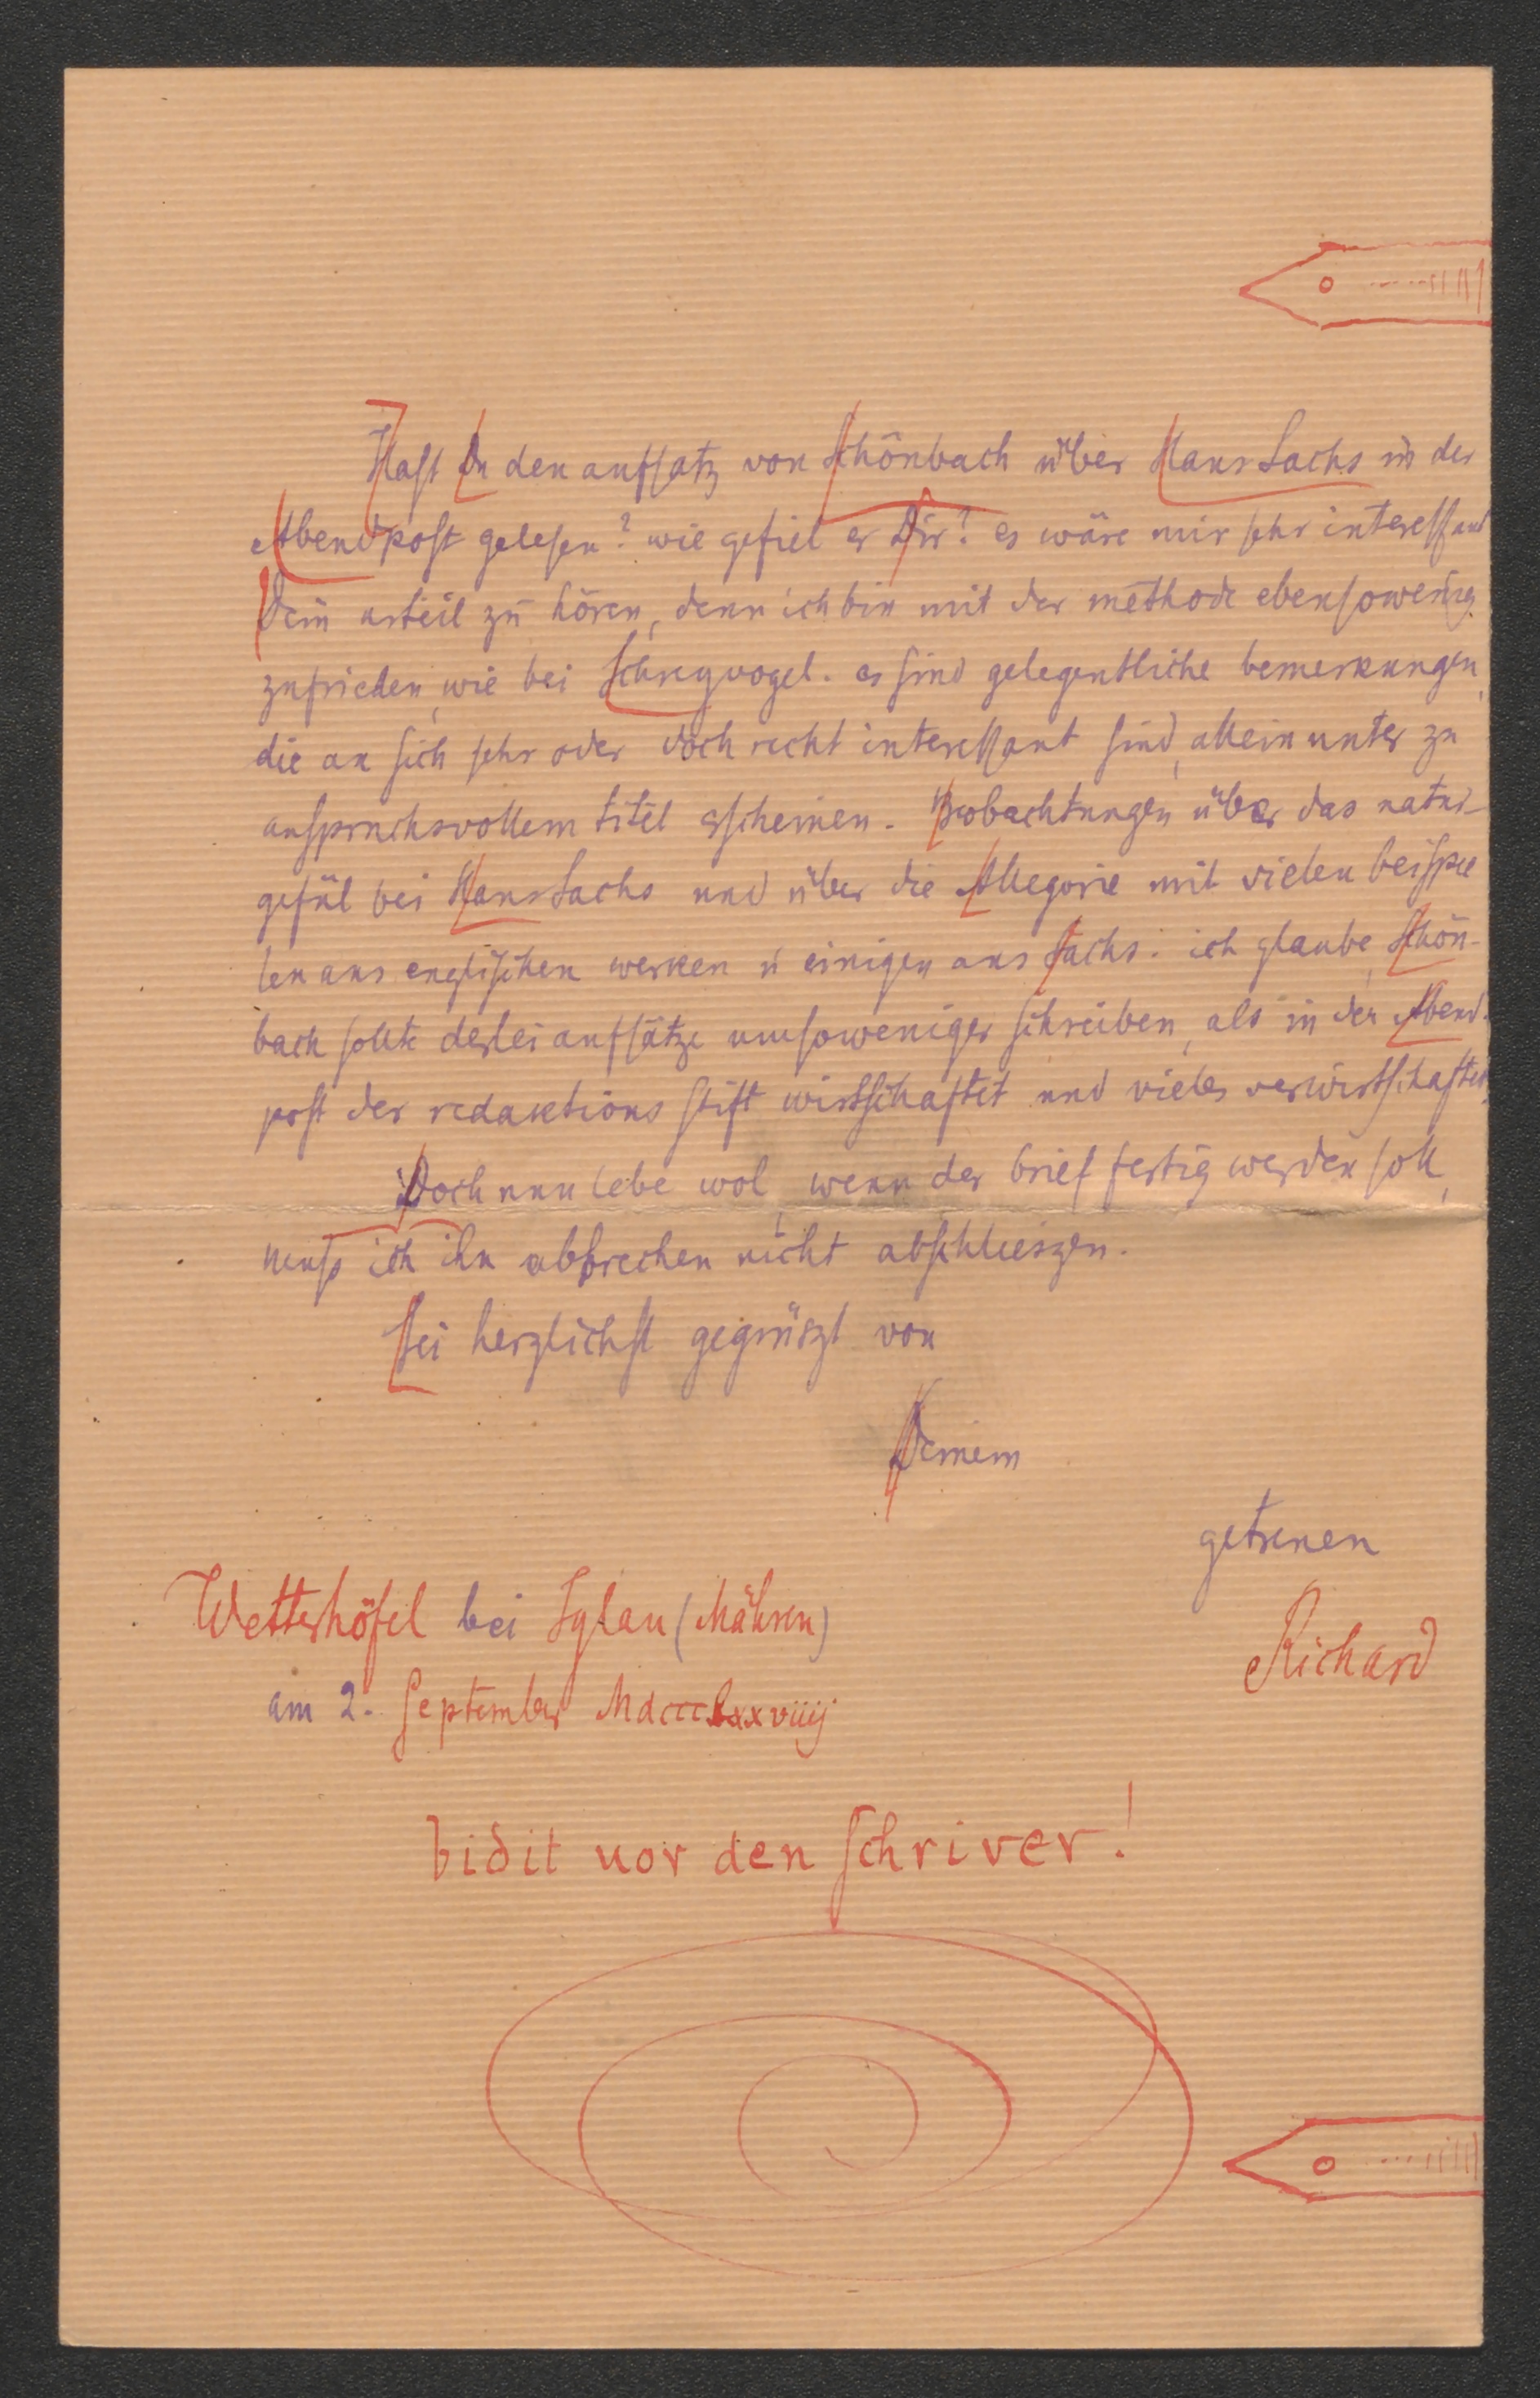 Hast Du den aufsatz von Schönbach über Hans Sachs in der
Abendpost gelesen? wie gefiel er Dir? es wäre mir sehr interessant
Dein urteil zu hören, denn ich bin mit der methode ebensowenig
zufrieden, wie bei Schreyvogel. es sind gelegentliche bemerkungen,
die an sich sehr oder doch recht interessant sind, allein unter zu
anspruchsvollem titel erscheinen. Beobachtungen über das natur-
gefül bei Hans Sachs und über die Allegorie mit vielen beispie
len aus englischen werken u einigen aus Sachs. ich glaube, Schön-
bach sollte derlei aufsätze umsoweniger schreiben, als in der Abend-
post der redaktions stift wirtschaftet und vieles verwirtschaftet.
Doch nun lebe wol, wenn der brief fertig werden soll,
muss ich ihn abbrechen nicht abschlieszen.
Sei herzlichst gegrüszt von
Deinem
getreuen
Richard
Wetterhöfel bei Iglau (Mähren)
am 2. September Mdccclxxviiij
bidit vor den schriver!